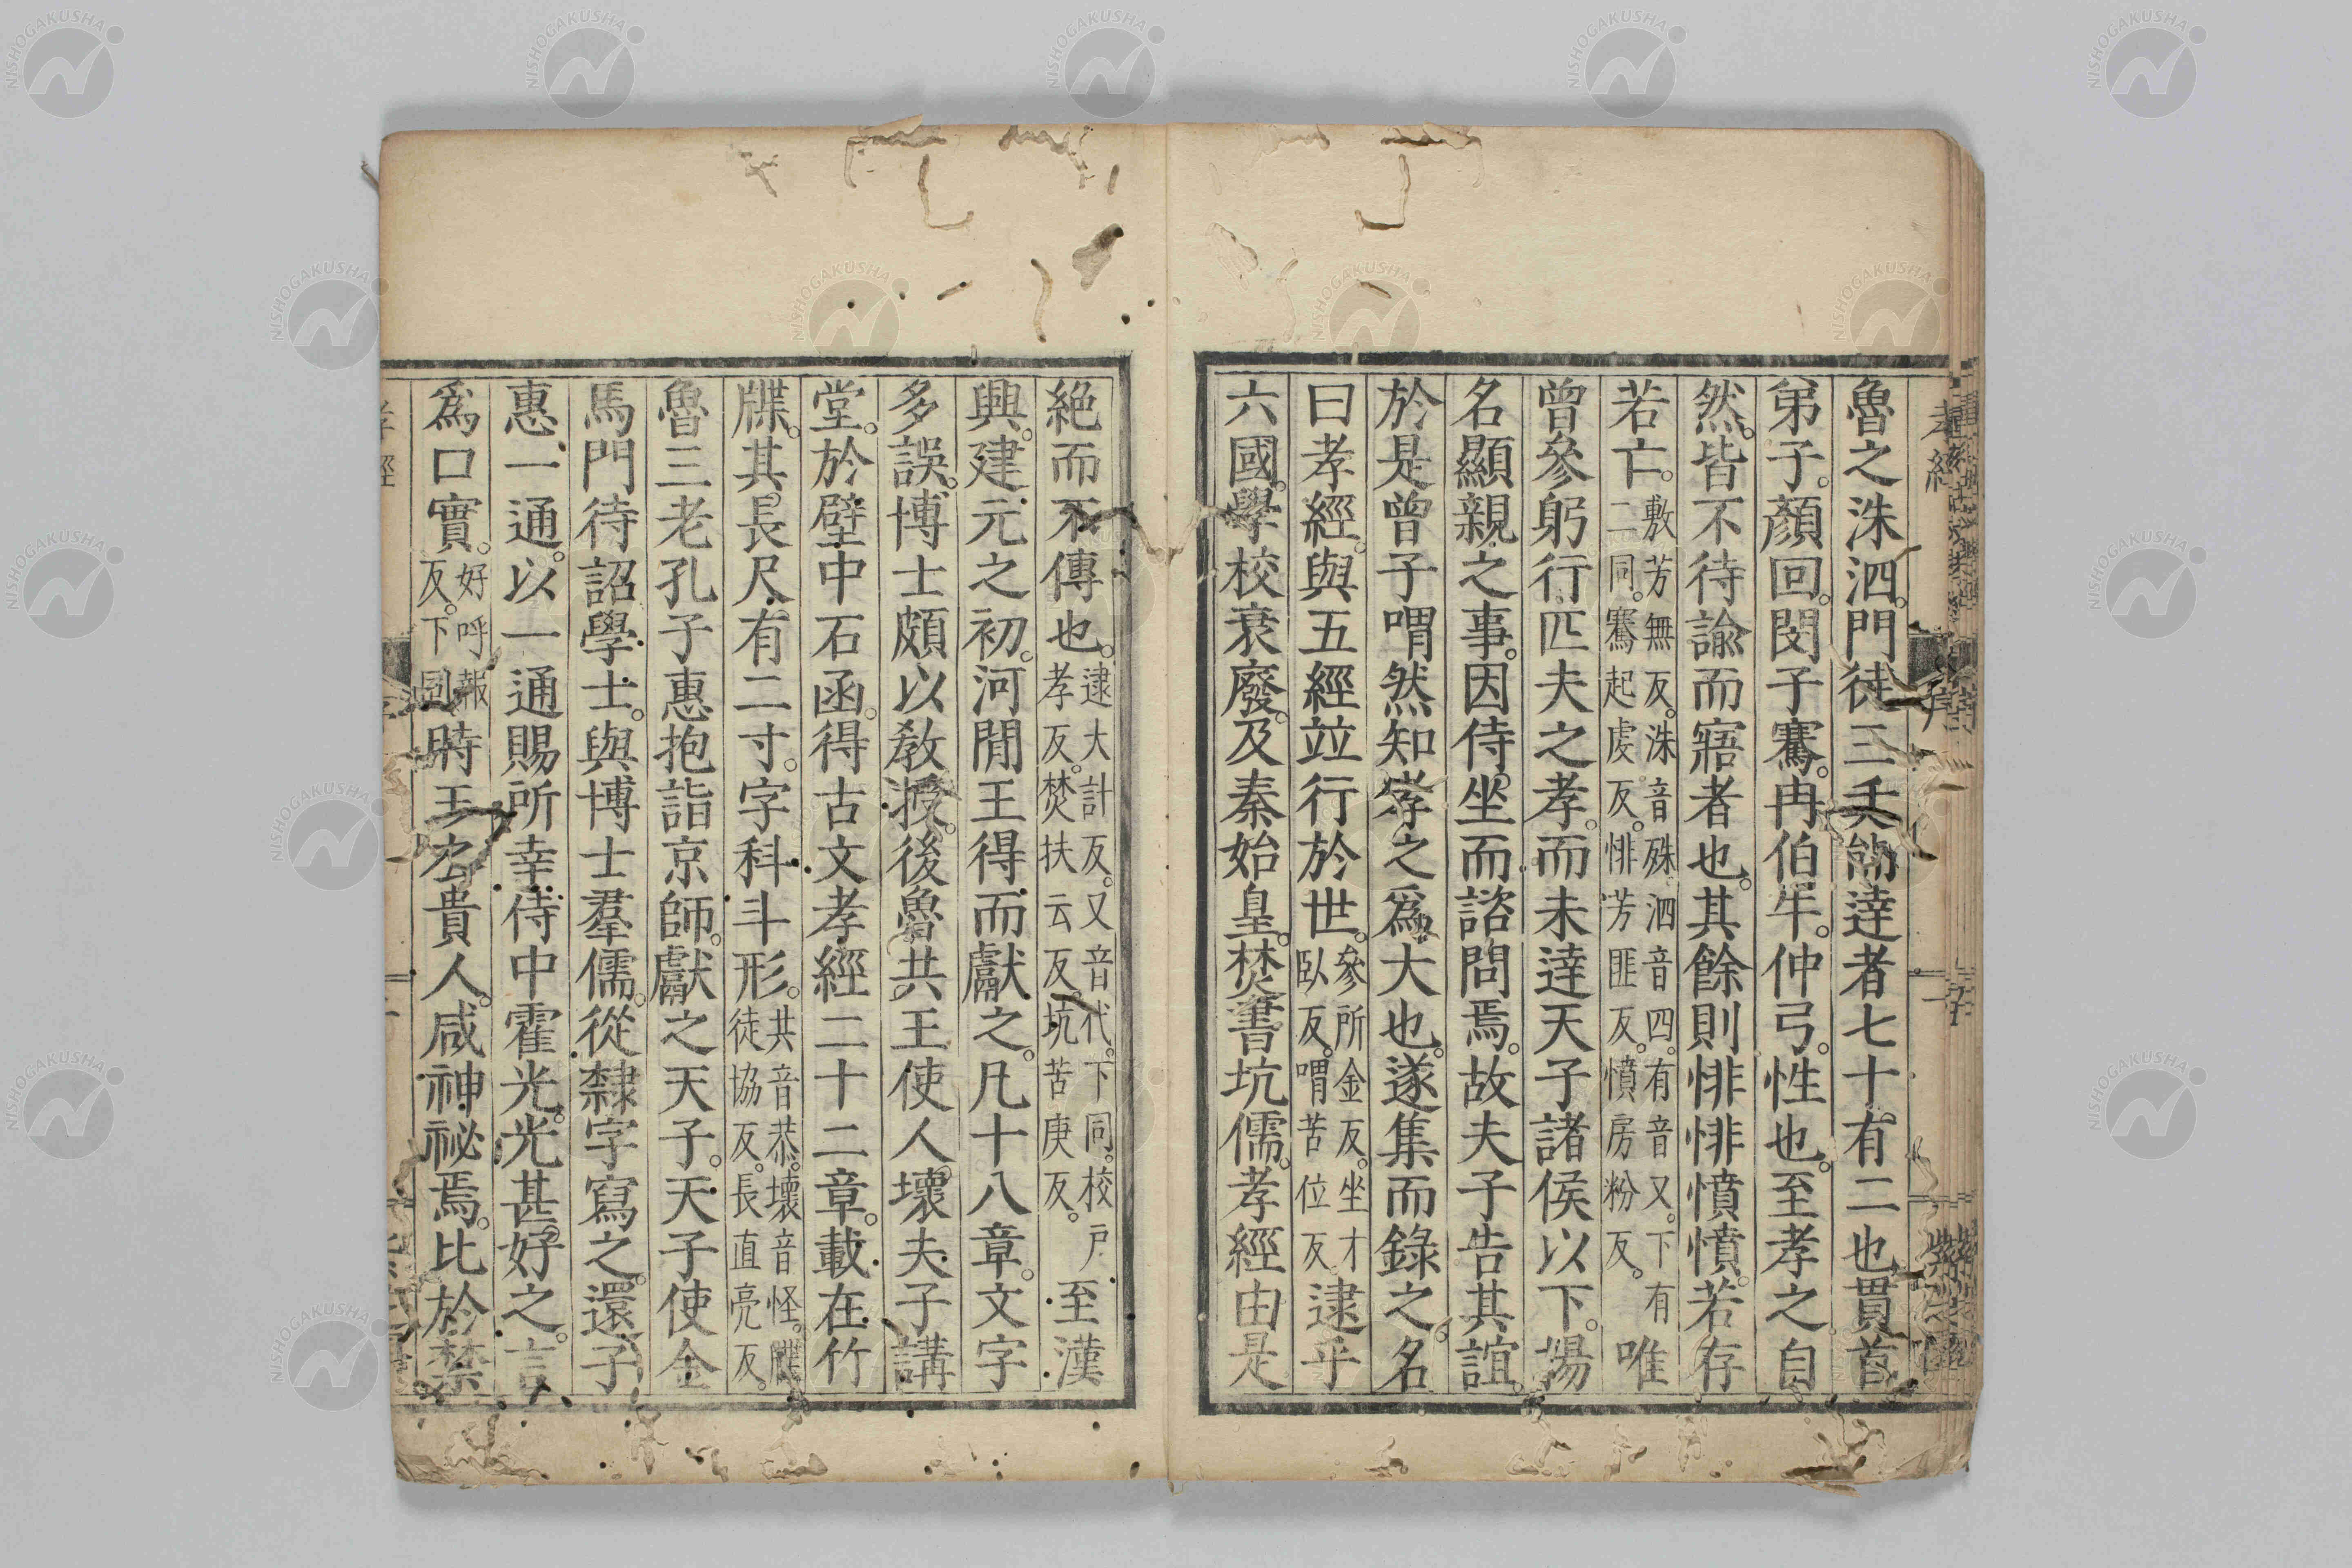 魯之洙泗。門徒三千。而達者七十有二也。貫首
弟子。顏回。閔子騫。冉伯牛。仲弓。性也。至孝之自
然。皆不待諭而寤者也。其餘則悱悱憤憤。若存
若亡。敷芳無反。洙音殊泗音四。有音又。下有
二同。騫起虔反。悱芳匪反。憤房粉反。唯
曾參躬行匹夫之孝。而未達天子諸侯以下。揚
名顯親之事。因侍坐而諮問焉。故夫子告其誼。
於是曾子喟然知孝之爲大也。遂集而錄之。名
曰孝經。與五經竝行於世。參所金反。坐才
臥反。喟苦位反。逮乎
六國。學校衰廢。及秦始皇。焚書坑儒。孝經由是
絕而不傳也。逮大計反。又音代。下同。校戶
孝反。焚扶云反。坑苦庚反。至漢
興。建元之初。河閒王得而獻之。凡十八章。文字
多誤。博士頗以敎授。後魯共王使人壞夫子講
堂。於壁中石函。得古文孝經二十二章。載在竹
牒。其長尺有二寸。字科斗形。共音恭。壞音怪。牒
徒協反。長直亮反。
魯三老孔子惠抱詣京師。獻之天子。天子使金
馬門待詔學士。與博士羣儒。從隸字寫之。還子
惠一通。以一通賜所幸侍中霍光。光甚好之。言
爲口實。好呼報
反。下同時王公貴人。咸神祕焉。比於禁
孝經
序
NISHOGAKUSHA